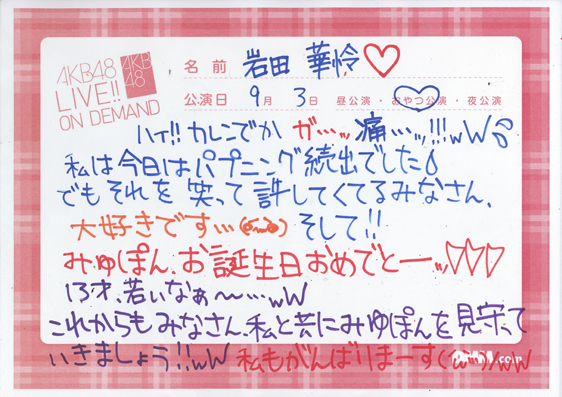 AKB48
LIVE!!
ON DEMAND
AKB
48
名前 岩田 華怜♡
公演日 9月 3日 昼公演・おやつ公演・夜公演
ハイ!!カレンでか ガ…ッ 痛…ッ!!!wW
私は今日はパプニング続出でした
でもそれを笑って許してくてるみなさん、
大好きです… そして!!
みゆぽん、お誕生日おめでとーッ♡♡♡
13才、若いなぁ〜…wW
これからもみなさん、私と共にみゆぽんを見守って
いきましょう!!wW 私もがんばりまーす(´ω`)/wW